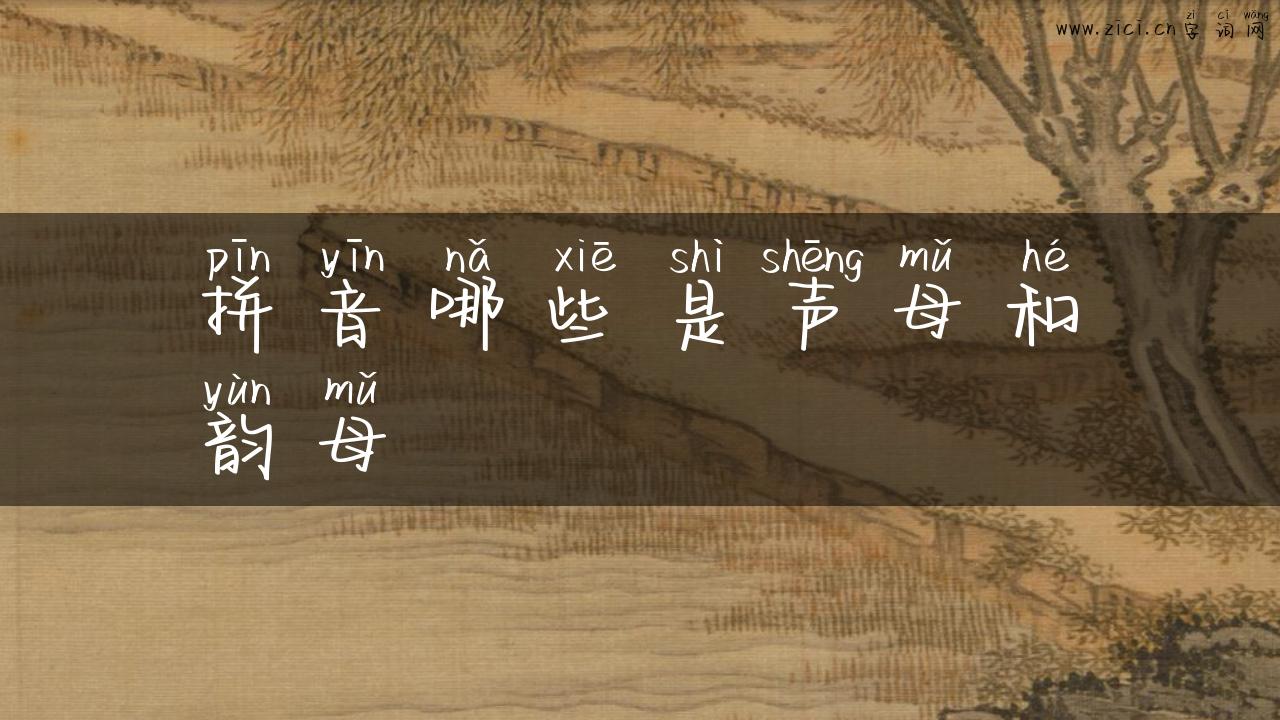 zì cí wǎng
www.zici.cn 字 词 网
pīn yīn nǎ xiē shì shēng mǔ hé
拼 音 哪 些 是 声 母 和
yùn mǔ
韵 母